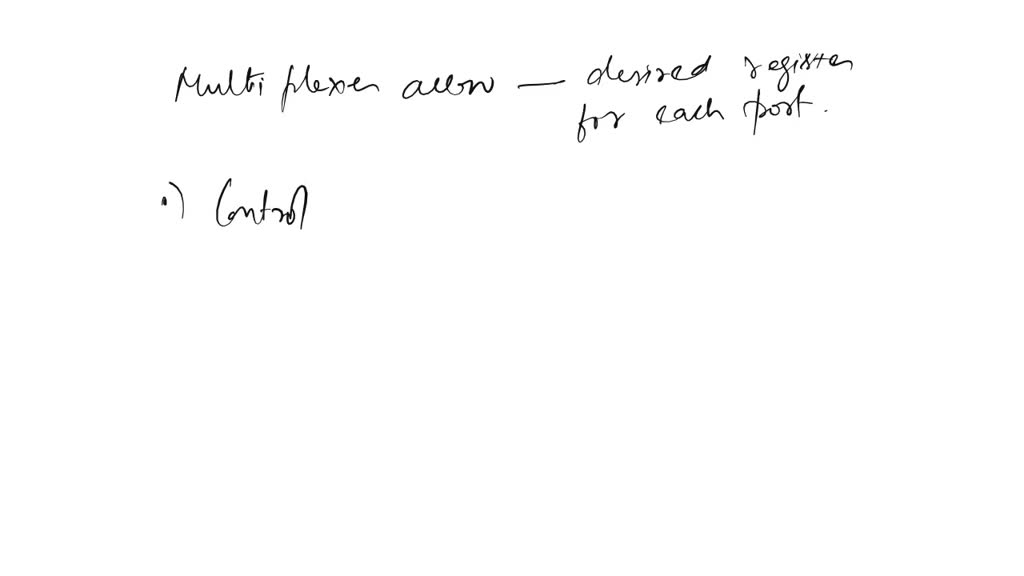 Multiplexer allow — desired register
for each port.
•) Control